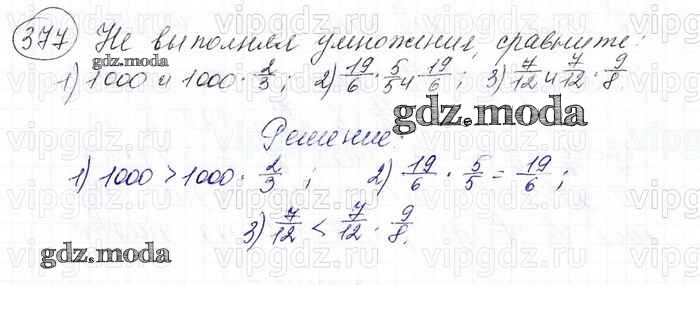 377 Не выполняя умножения, сравните:
1) 1000 и 1000 · 2/3; 2) 19/6 · 5/5 и 19/6; 3) 7/12 и 7/12 · 9/8.
gdz.moda
Решение:
1) 1000 > 1000 · 2/3; 2) 19/6 · 5/5 = 19/6;
3) 7/12 < 7/12 · 9/8.
gdz.moda